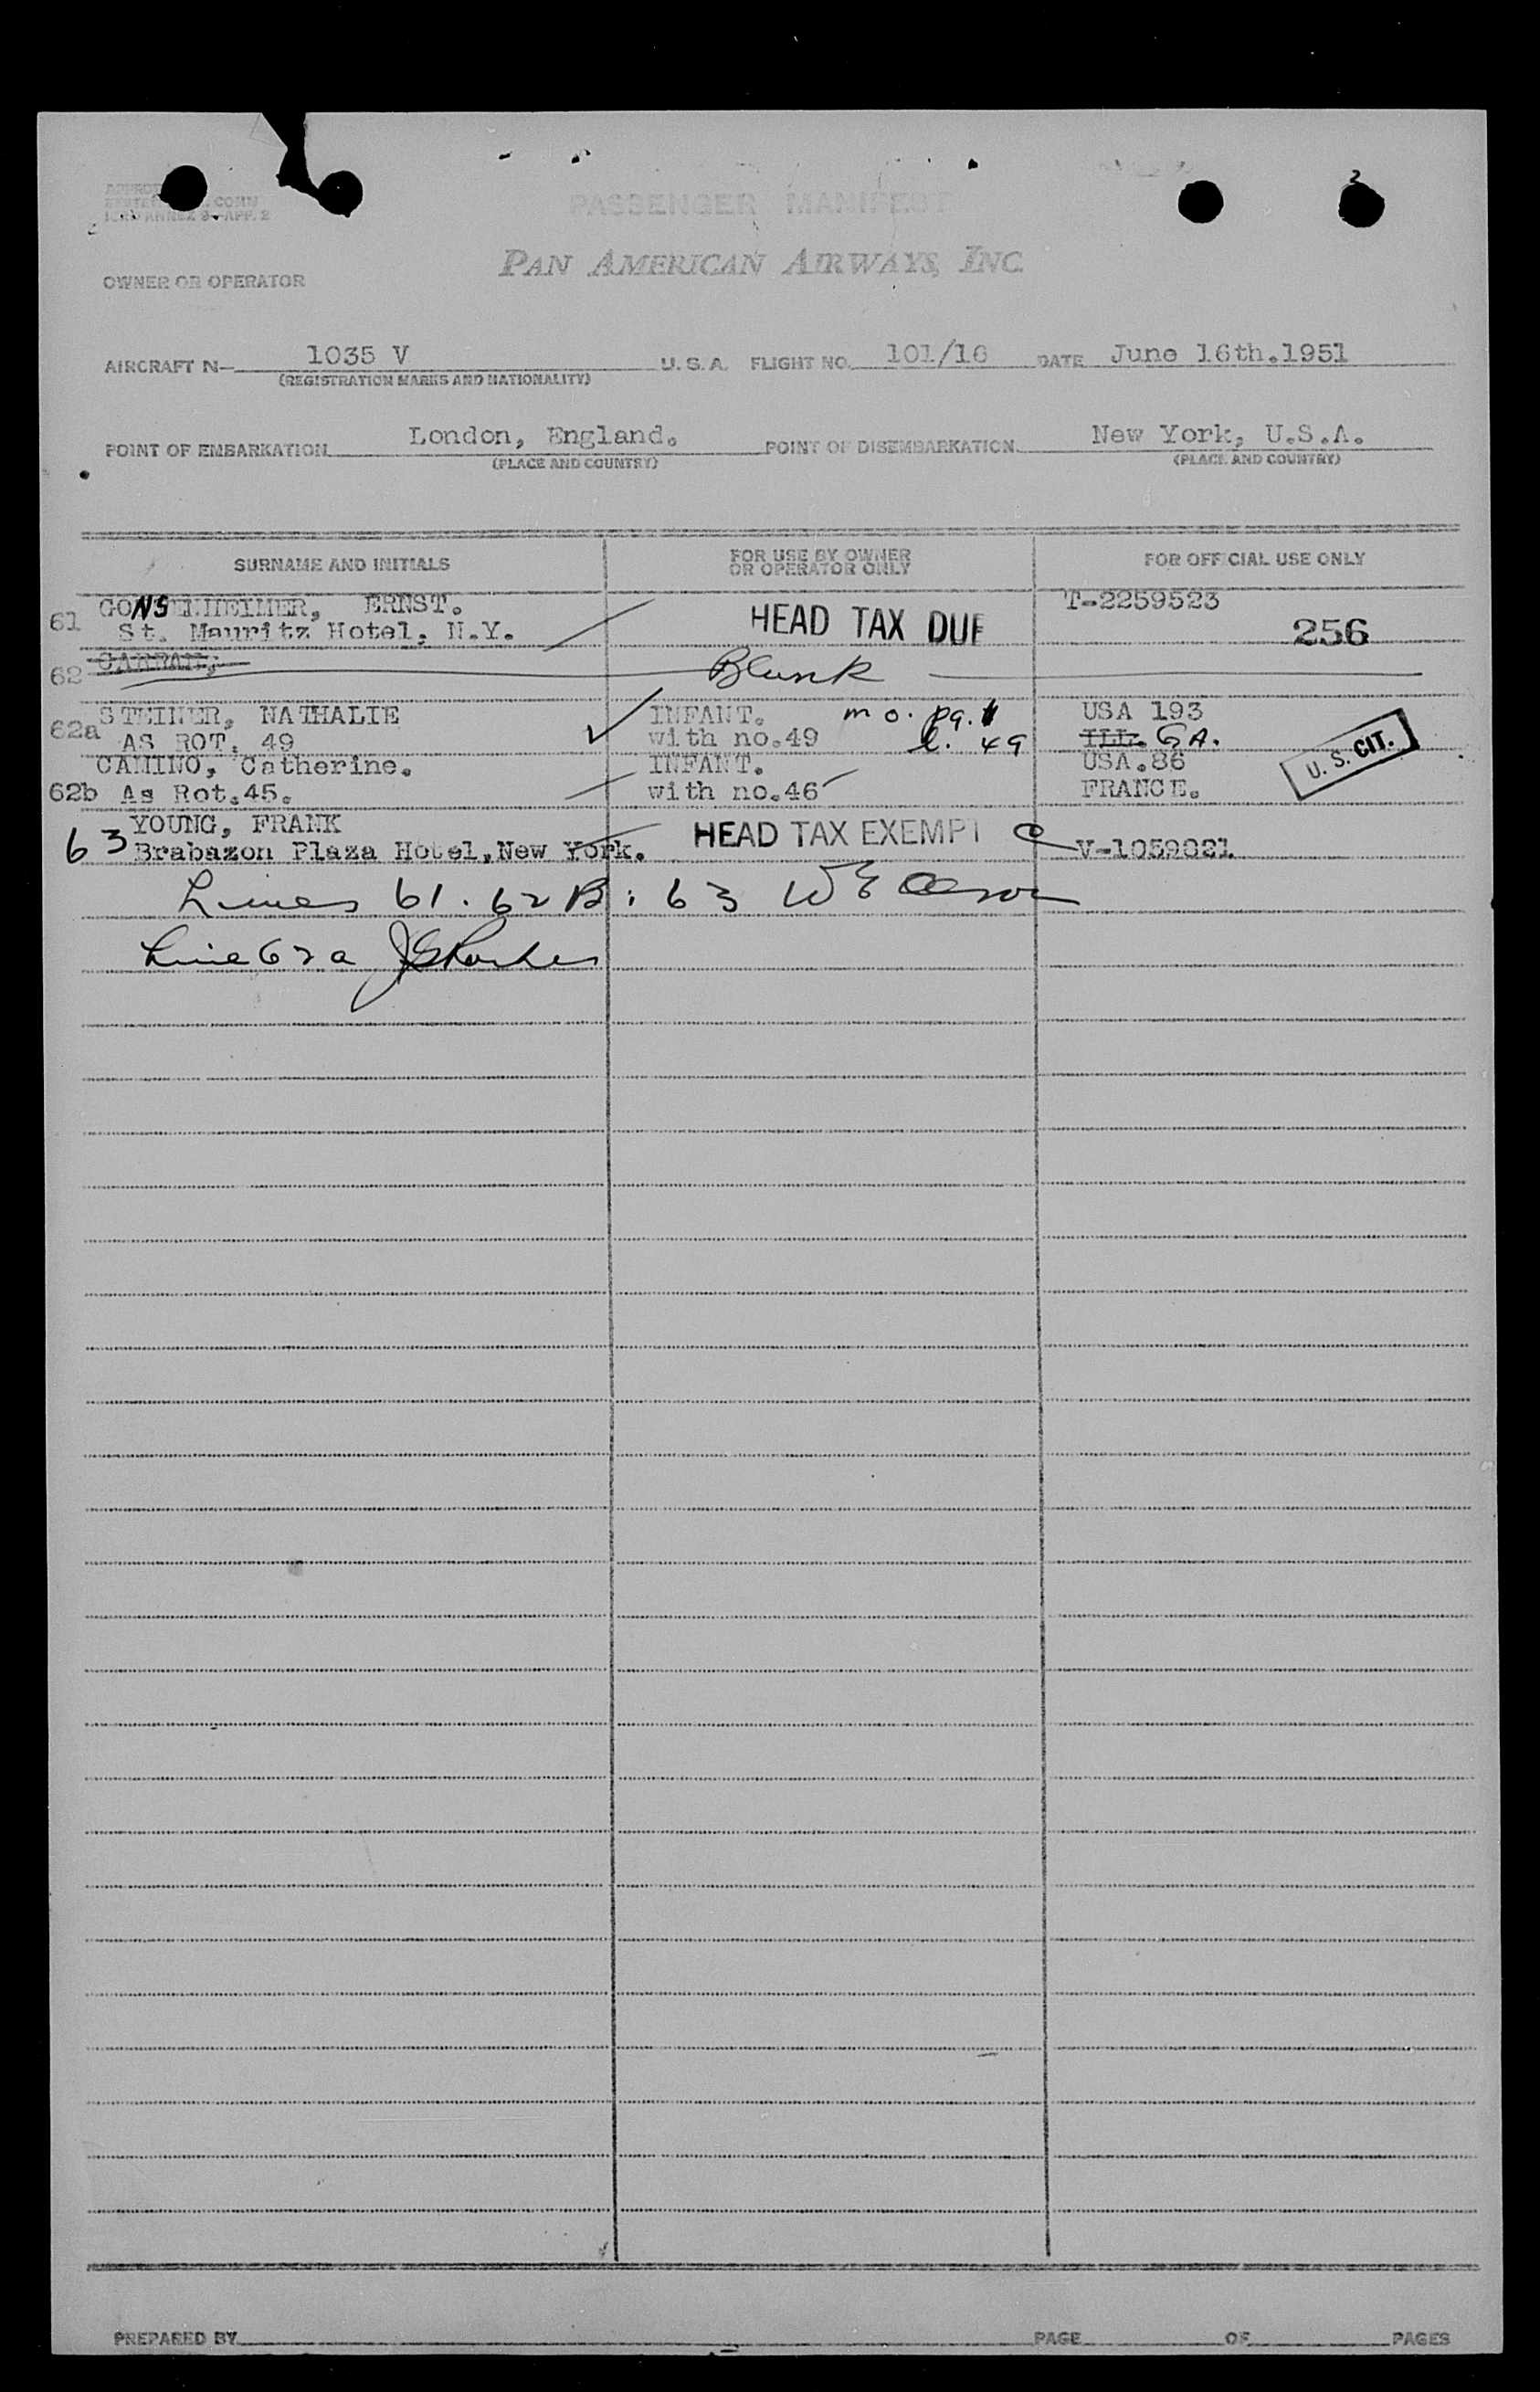 PASSENGER MANIFEST
ANNEX 9-APP. 2
PAN AMERICAN AIRWAYS, INC.
OWNER OR OPERATOR
AIRCRAFT N- 1035 V U.S.A. FLIGHT NO. 101/16 DATE June 16th.1951
(REGISTRATION MARKS AND NATIONALITY)
POINT OF EMBARKATION London, England. POINT OF DISEMBARKATION New York, U.S.A.
(PLACE AND COUNTRY) (PLACE AND COUNTRY)
SURNAME AND INITIALS FOR USE BY OWNER OR OPERATOR ONLY FOR OFFICIAL USE ONLY
61 GONSENHEIMER, ERNST. T-2259523
St. Mauritz Hotel, N.Y. HEAD TAX DUE 256
62 Blank
62a STEINER, NATHALIE INFANT. mo. pg. 1 USA 193
AS ROT. 49 with no.49 l. 49 ILL. GA. U. S. CIT.
CAMINO, Catherine. INFANT. USA.86
62b As Rot.45. with no.46 FRANCE.
63 YOUNG, FRANK HEAD TAX EXEMPT
Brabazon Plaza Hotel, New York. V-1059021
Lines 61. 62B: 63
Line 62a
PREPARED BY PAGE OF PAGES